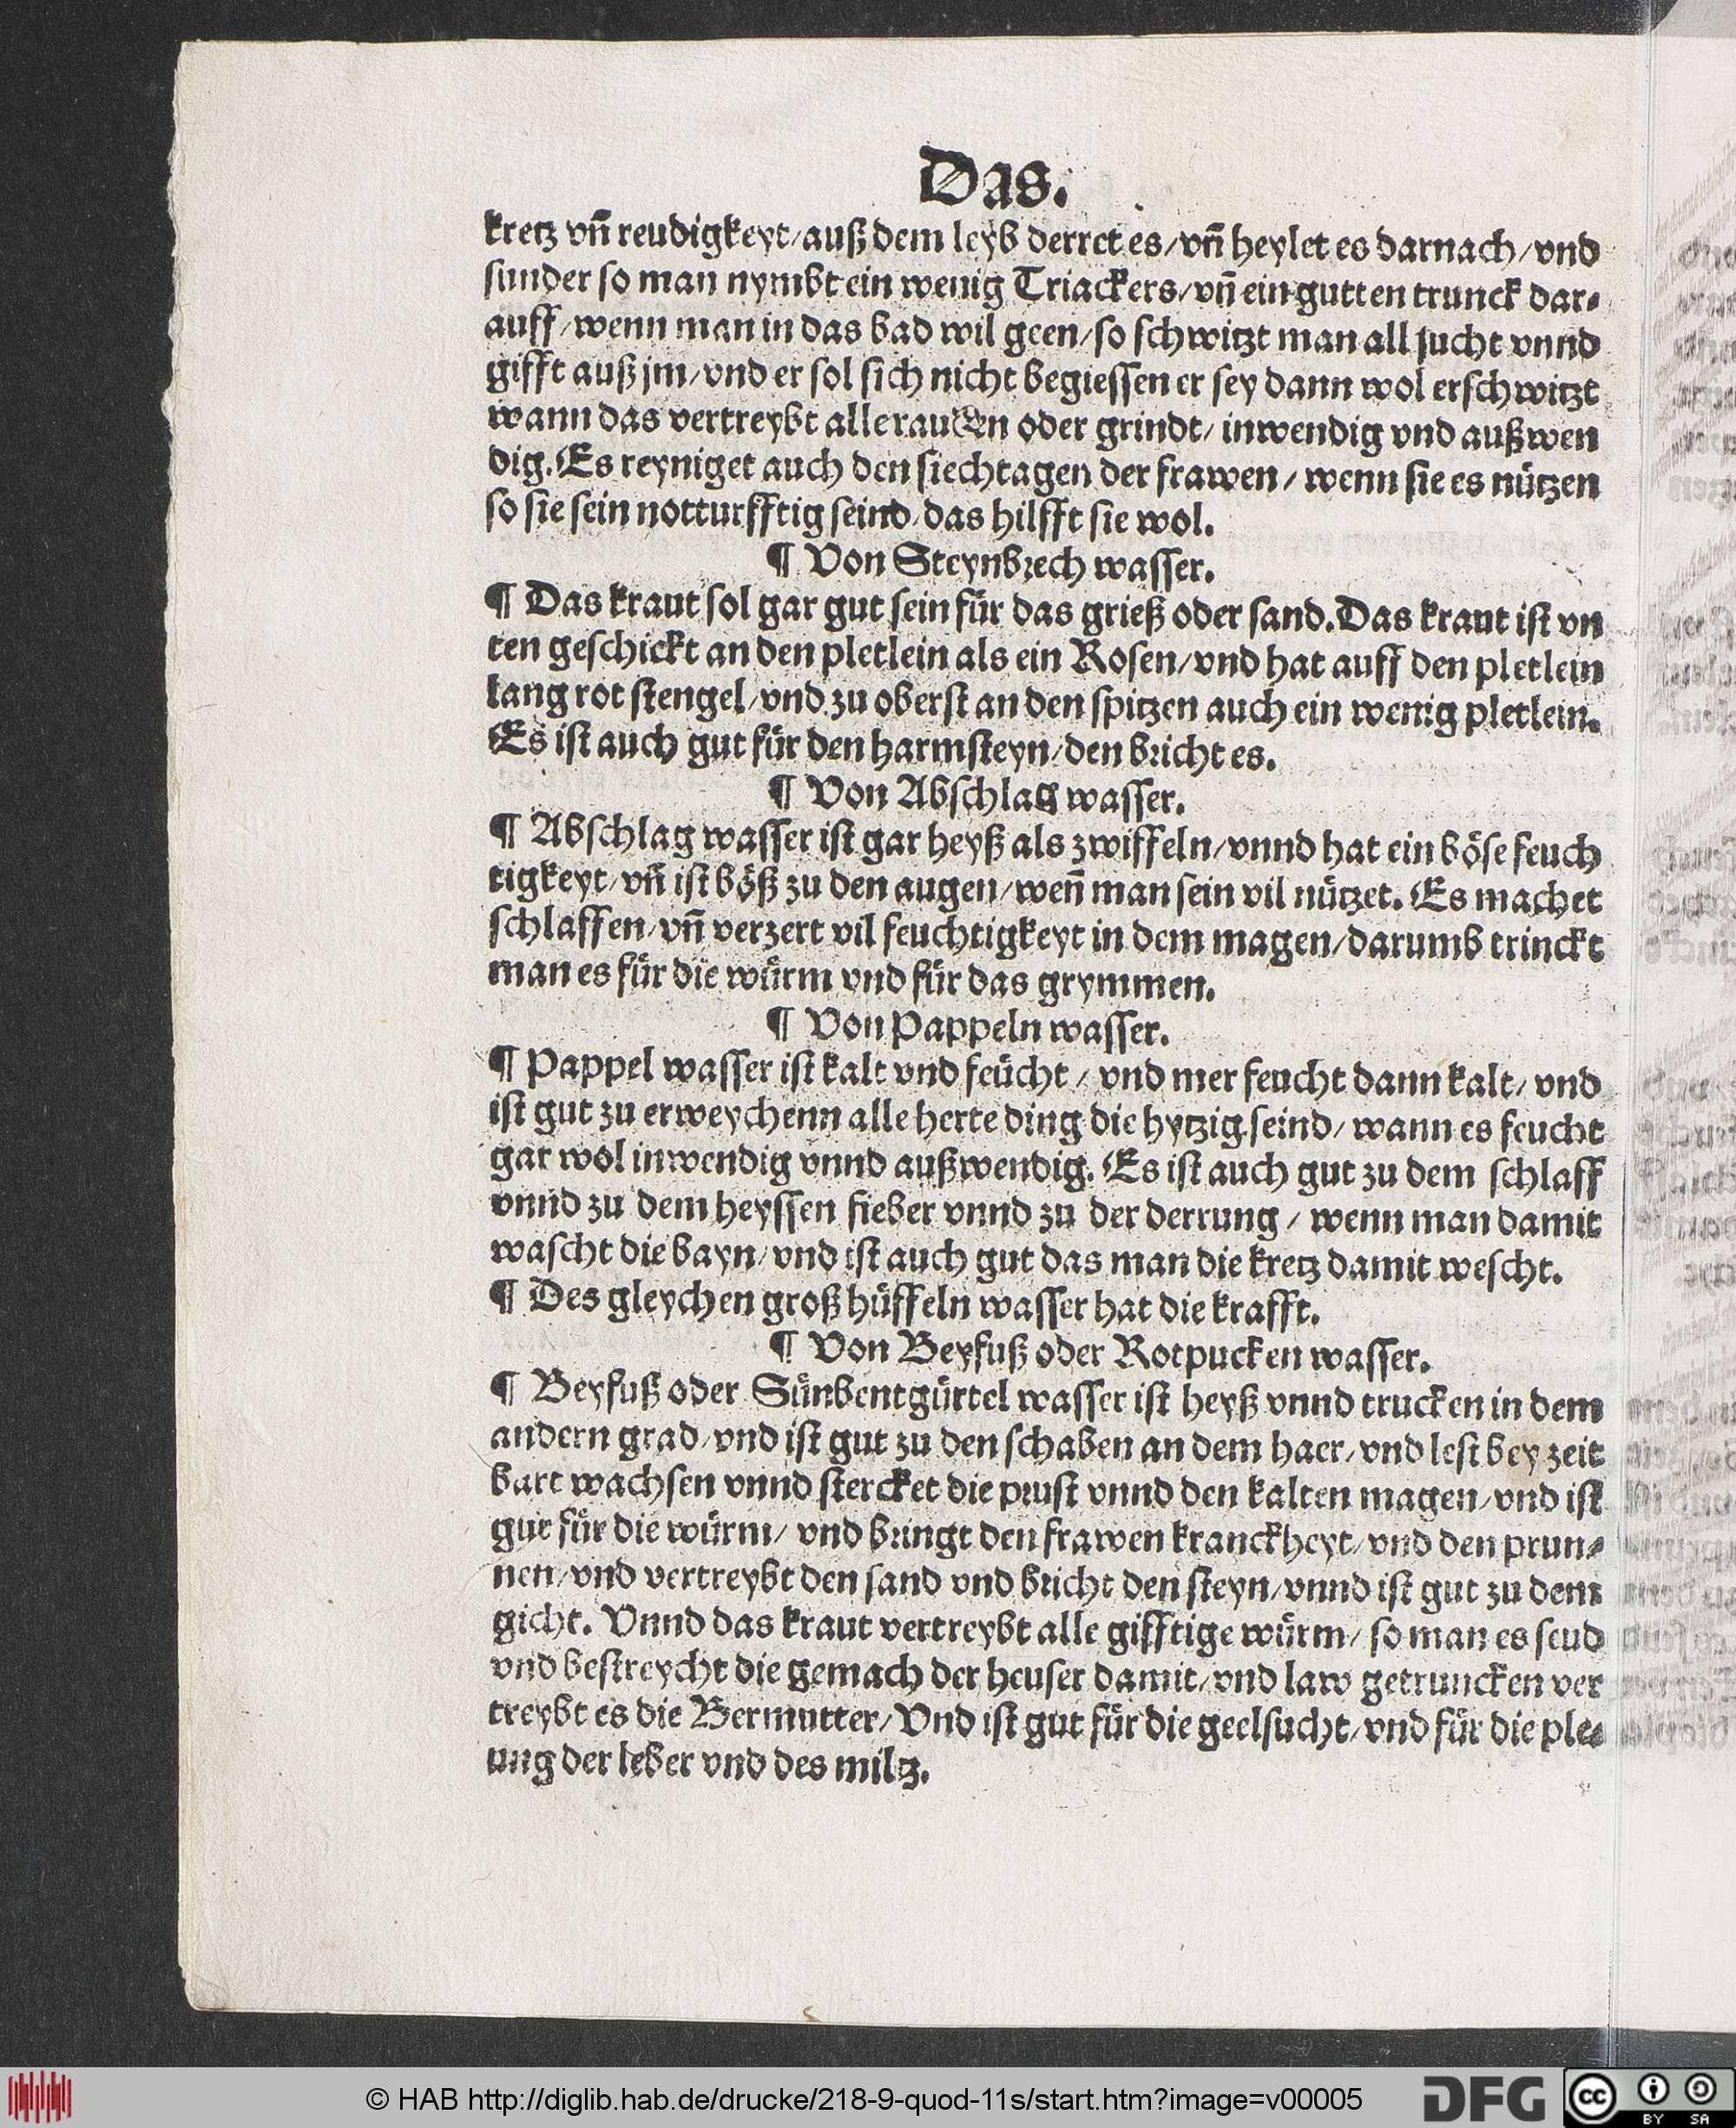 Das.
kretz vñ reudigkeyt/auß dem leyb derret es/vñ heylet es darnach/vnd
sunder so man nymbt ein wenig Triackers/vñ ein gutten trunck dar⸗
auff/wenn man in das bad wil geen/so schwitzt man all sucht vnnd
gifft auß jm/vnd er sol sich nicht begiessen er sey dann wol erschwitzt
wann das vertreybt alle rauden oder grindt/ inwendig vnd außwen
dig. Es reyniget auch den siechtagen der frawen/ wenn sie es nützen
so sie sein notturfftig seind/das hilfft sie wol.
¶ Von Steynbrech wasser.
¶ Das kraut sol gar gut sein für das grieß oder sand. Das kraut ist vn
ten geschickt an den pletlein als ein Rosen/vnd hat auff den pletlein
lang rot stengel/vnd zu oberst an den spitzen auch ein wenig pletlein.
Es ist auch gut für den harmsteyn/den bricht es.
¶ Von Abschlag wasser.
¶ Abschlag wasser ist gar heyß als zwiffeln/vnnd hat ein böse feuch
tigkeyt/vñ ist böß zu den augen/weñ man sein vil nützet. Es machet
schlaffen/vñ verzert vil feuchtigkeyt in dem magen/darumb trinckt
man es für die würm vnd für das grymmen.
¶ Von Pappeln wasser.
¶ Pappel wasser ist kalt vnd feücht/ vnd mer feucht dann kalt/ vnd
ist gut zu erweychenn alle herte ding die hytzig seind/ wann es feucht
gar wol inwendig vnnd außwendig. Es ist auch gut zu dem schlaff
vnnd zu dem heyssen fieber vnnd zu der derrung/ wenn man damit
wascht die bayn/vnd ist auch gut das man die kretz damit wescht.
¶ Des gleychen groß hüffeln wasser hat die krafft.
¶ Von Beyfuß oder Rotpucken wasser.
¶ Beyfuß oder Sünbentgürtel wasser ist heyß vnnd trucken in dem
andern grad/vnd ist gut zu den schaben an dem haer/vnd lest bey zeit
bart wachsen vnnd stercket die prust vnnd den kalten magen/vnd ist
gut für die würm/ vnd bringt den frawen kranckheyt/vnd den prun⸗
nen/vnd vertreybt den sand vnd bricht den steyn/vnnd ist gut zu dem
gicht. Vnnd das kraut vertreybt alle gifftige würm/ so man es seud
vnd bestreycht die gemach der heuser damit/vnd law getruncken ver
treybt es die Bermutter/Vnd ist gut für die geelsucht/vnd für die ple⸗
ung der leber vnd des miltz.
© HAB http://diglib.hab.de/drucke/218-9-quod-11s/start.htm?image=v00005
DFG
cc BY SA